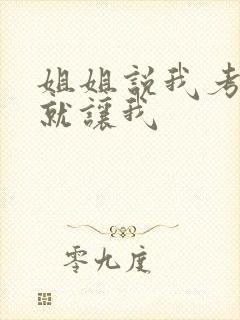 姐姐説我考
就讓我
零九度